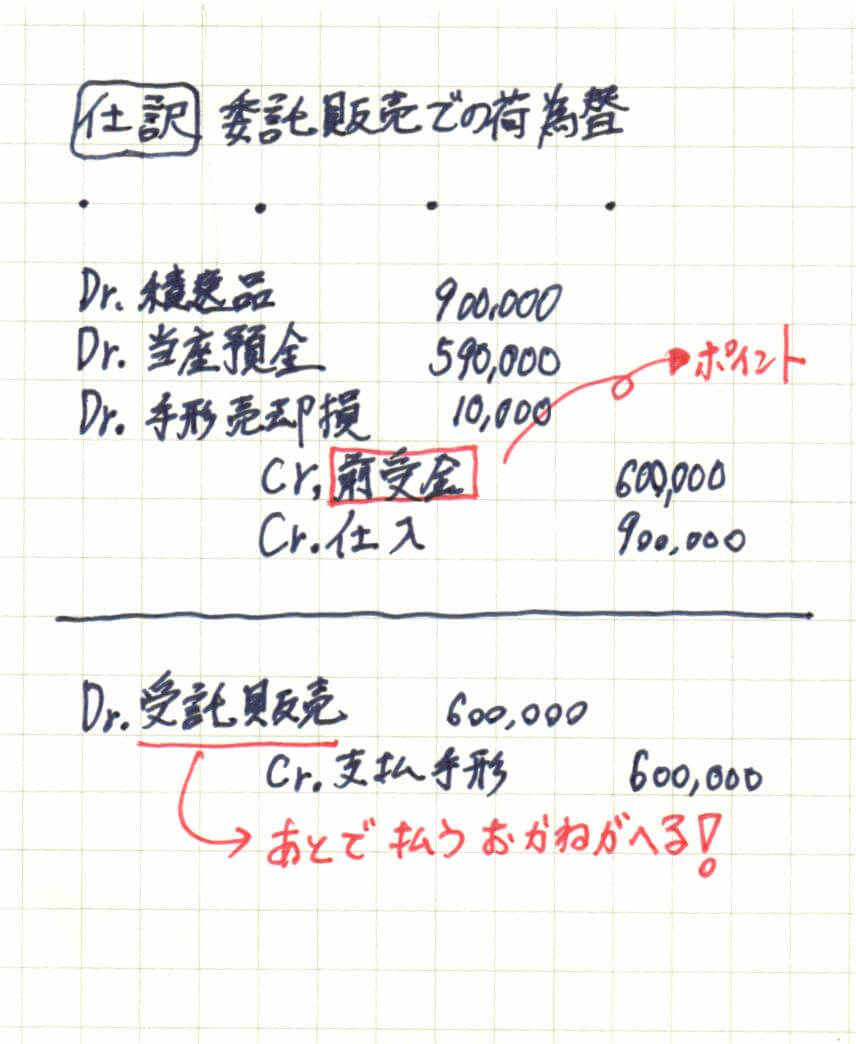 仕訳 委託販売での荷為替
Dr. 積送品 900,000
Dr. 当座預金 590,000
ポイント
Dr. 手形売却損 10,000
Cr. 前受金 600,000
Cr. 仕入 900,000
Dr. 受託販売 600,000
Cr. 支払手形 600,000
あとで払うおかねがへる!